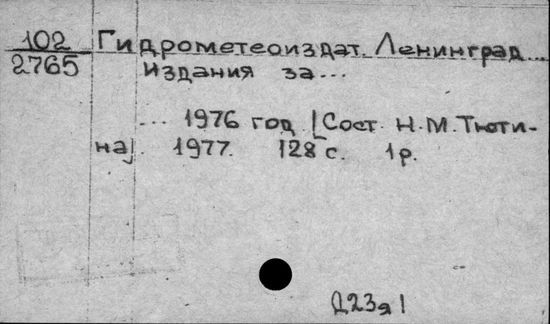 102 Гидрометеоиздат. Ленинград...
2765 Издания за...
... 1976 год [Сост. Н.М.Тюти-
на]. 1977. 128 с. 1 р.
Д23я1